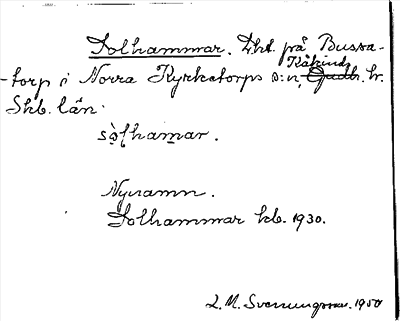 Solhammar. Lht. på Bussa-
Kåkinds
-torp i Norra Kyrketorps s:n, Gudh. hr.
Skb. län.
sò̩lhamar.
Nynamn.
Solhammar kb. 1930.
L. M. Svenungsson. 1950